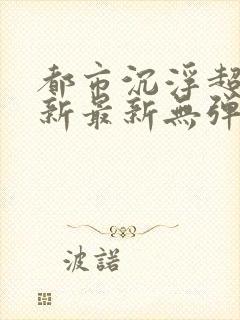 都市沉浮超
新最新無弹
波諾